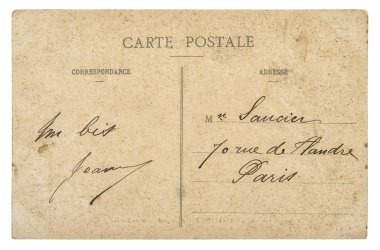 CARTE POSTALE
CORRESPONDANCE
ADRESSE
Un bis
Jeanne
Mr Saucier
70 rue de Flandre
Paris